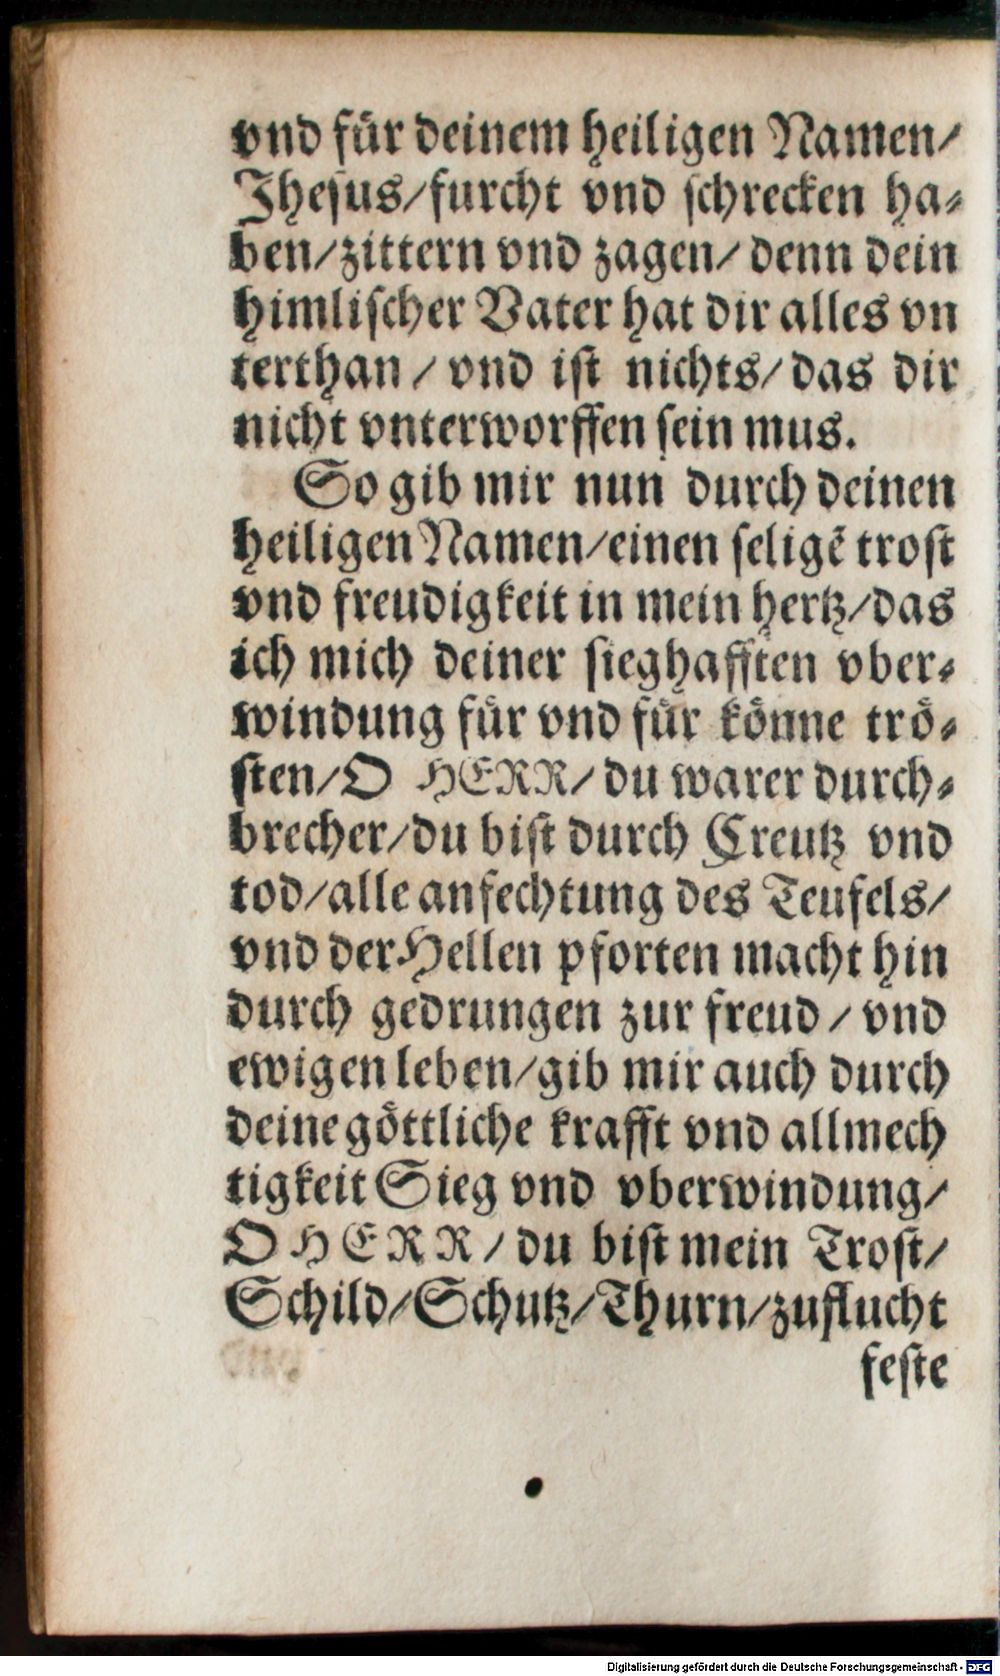 vnd für deinem heiligen Namen/
Jhesus/furcht vnd schrecken ha⸗
ben/zittern vnd zagen/denn dein
himlischer Vater hat dir alles vn
terthan/vnd ist nichts/das dir
nicht vnterworffen sein mus.
So gib mir nun durch deinen
heiligen Namen/einen seligē trost
vnd freudigkeit in mein hertz/das
ich mich deiner sieghafften vber⸗
windung für vnd für könne trö⸗
sten/O HERR/du warer durch⸗
brecher/du bist durch Creutz vnd
tod/alle anfechtung des Teufels/
vnd der Hellen pforten macht hin
durch gedrungen zur freud/vnd
ewigen leben/gib mir auch durch
deine göttliche krafft vnd allmech
tigkeit Sieg vnd vberwindung/
O HERR/du bist mein Trost/
Schild/Schutz/Thurn/zuflucht
feste
Digitalisierung gefördert durch die Deutsche Forschungsgemeinschaft - DFG